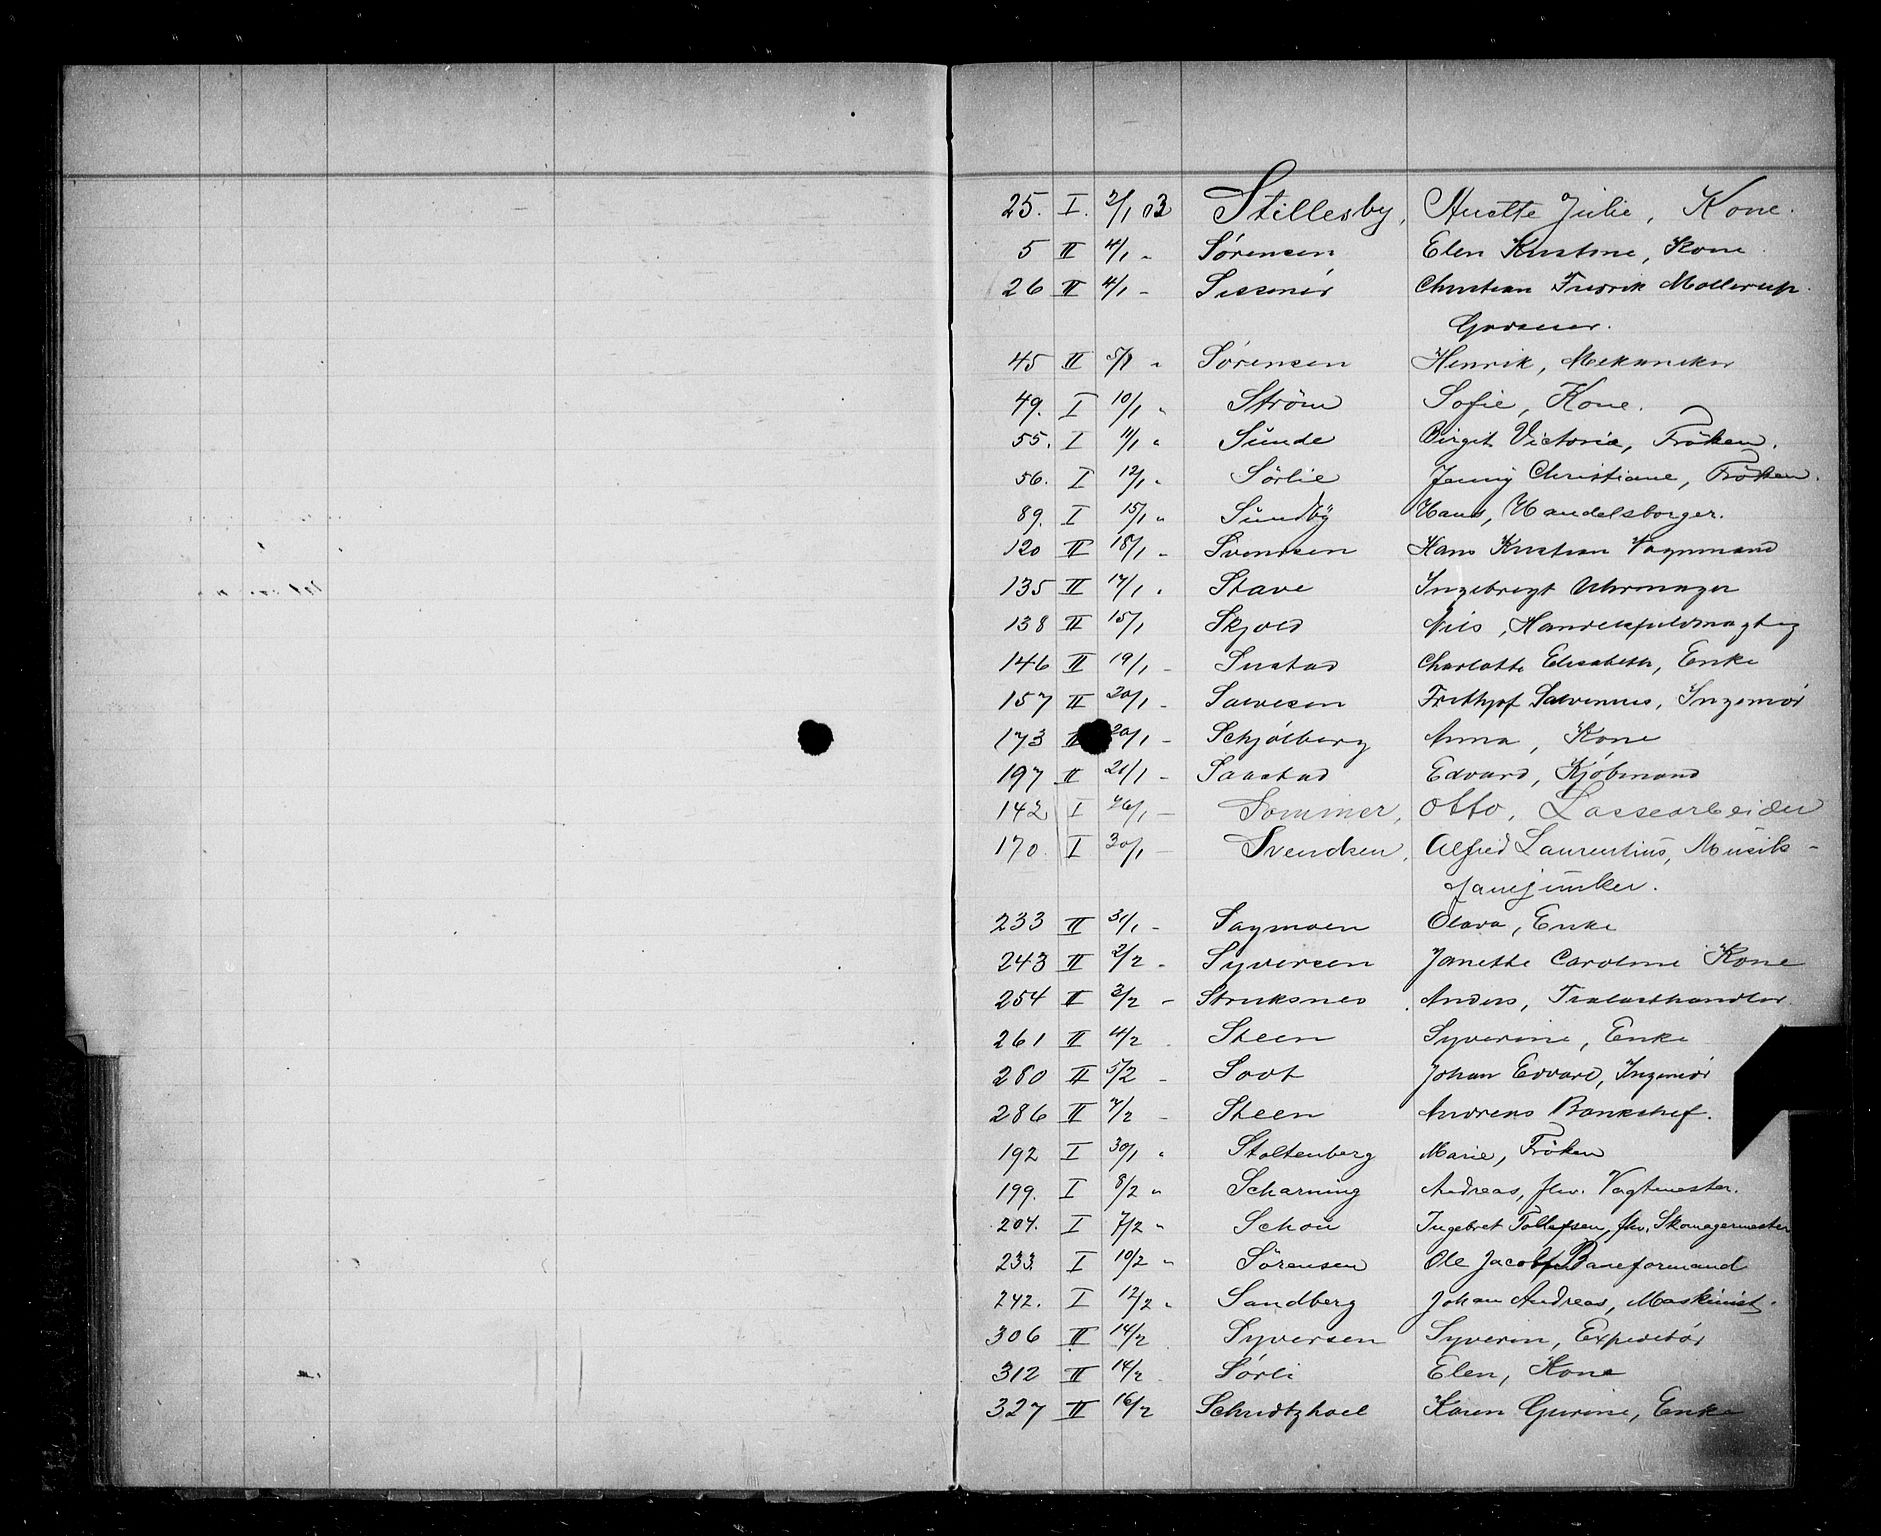 25. I. 2/1 03 Stillesby, Anette Julie, Kone.
5 II 4/1 " Sørensen Elen Kristine, Kone.
26 II 4/1 - Sissenér Christian Fredrik Mollerup.
Grosserer.
45 II 5/1 " Sørensen Henrik, Mekaniker
49. I 10/1 " Strøm Sofie, Kone.
55. I 11/1 " Sunde Birgit Victoria, Frøken.
56. I 12/1 " Sørlie Jenny Christiane, Frøken.
89. I 15/1 " Sundby Hans, Handelsborger.
120 II 18/1 " Svendsen Hans Kristian Vognmand
135 II 17/1 " Stave Ingebregt Uhrmager
138 II 15/1 Skjold Nils, Handelsfuldmægtig
146 II 19/1 - Sustad Charlotte Elisabeth, Enke
157 II 20/1 - Salvesen Frithjof Salvenius, Ingeniør
173 II 20/1 - Schjölberg Anna, Kone
197 II 21/1 - Saastad Edvard, Kjøbmand
142 I 26/1 - Sommer, Otto, Lossearbeider
170. I 30/1 - Svendsen, Alfred Laurentius, Musik-
fanejunker.
233 II 31/1 - Sagmoen Olava, Enke
243 II 2/2 - Syversen Janette Caroline Kone
254 II 3/2 - Struksnes Anders, Trælasthandler
261 II 4/2 Steen Syverine, Enke
280 II 5/2 - Soot Johan Edvard, Ingeniør
286 II 7/2 - Steen Andreas Bankchef.
192 I 30/1 " Stoltenberg Marie, Frøken
199. I 8/2 " Scharning Andreas, fhv. Vagtmester.
204. I 7/2 " Schou Ingebret Tollefsen, fhv. Skomagermester
233. I 10/2 " Sørensen Ole Jacob, Baneformand
242. I 12/2 " Sandberg Johan Andreas, Maskinist.
306 II 14/2 Syversen Syverin, Expeditør
312 II 14/2 Sørli Elen, Kone
327 II 16/2 Karen Gurine, Enke